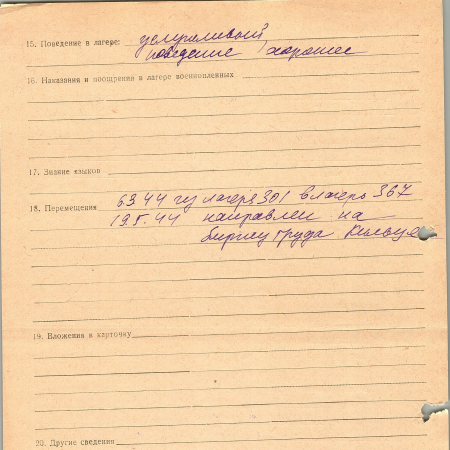 15. Поведение в лагере: услужливый,
поведение хорошее
16. Наказания и поощрения в лагере военнопленных
17. Знание языков
18. Перемещения 6.3.44 из лагеря 301 в лагерь 367
19.5.44 направлен на
биржу труда
19. Вложения в карточку
20. Другие сведения